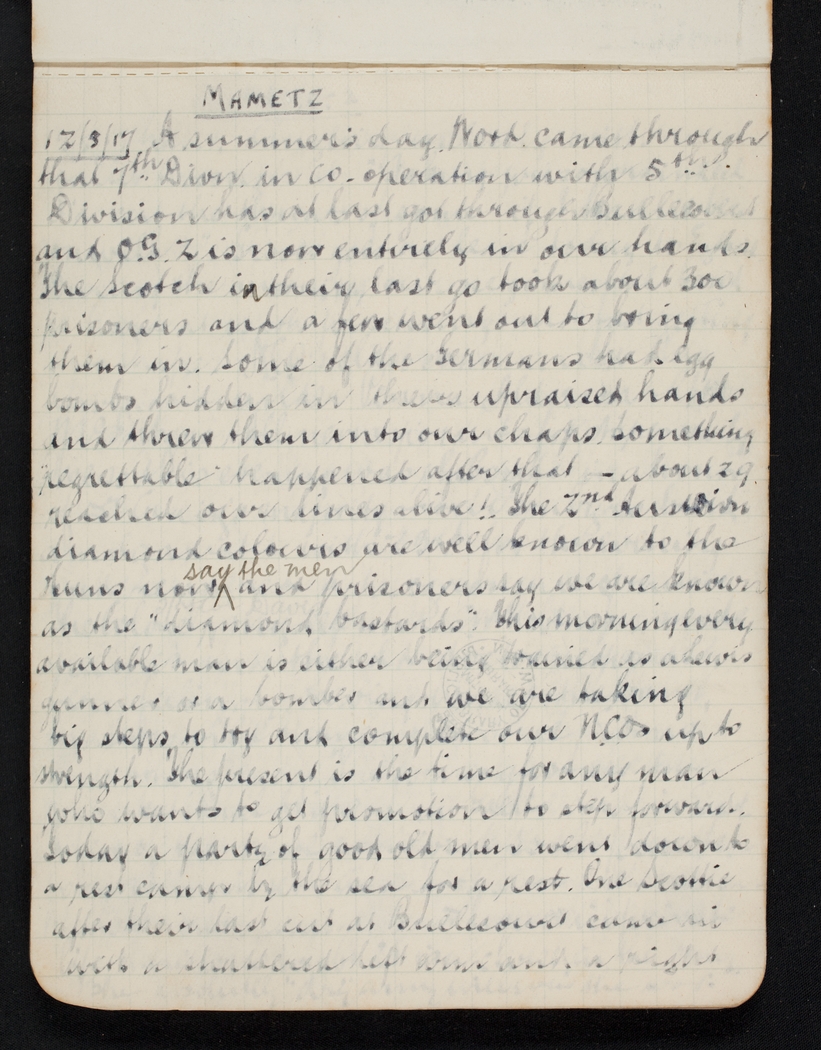 MAMETZ
12/5/17 A summer's day. Word came through
that 7th Divn. in co-operation with 5th
Division has at last got through Bullecourt
and O.G. 2 is now entirely in our hands.
The Scotch in their last go took about 300
prisoners and a few went out to bring
them in. Some of the Germans had egg
bombs hidden in their upraised hands
and threw them into our chaps. Something
"regrettable" happened after that — about 29
reached our lines alive! The 2nd Division
diamond colours are well known to the
say the men
Huns now and prisoners say we are known
as the "diamond bastards". This morning every
available man is either being trained as a Lewis
gunner or a bomber and we are taking
big steps to try and complete our NCOs up to
strength. The present is the time for any man
who wants to get promotion to step forward.
Today a party of good old men went down to
a rest camp by the sea for a rest. One Scottie
after their last cut at Bullecourt came in
with a shattered left arm and a right